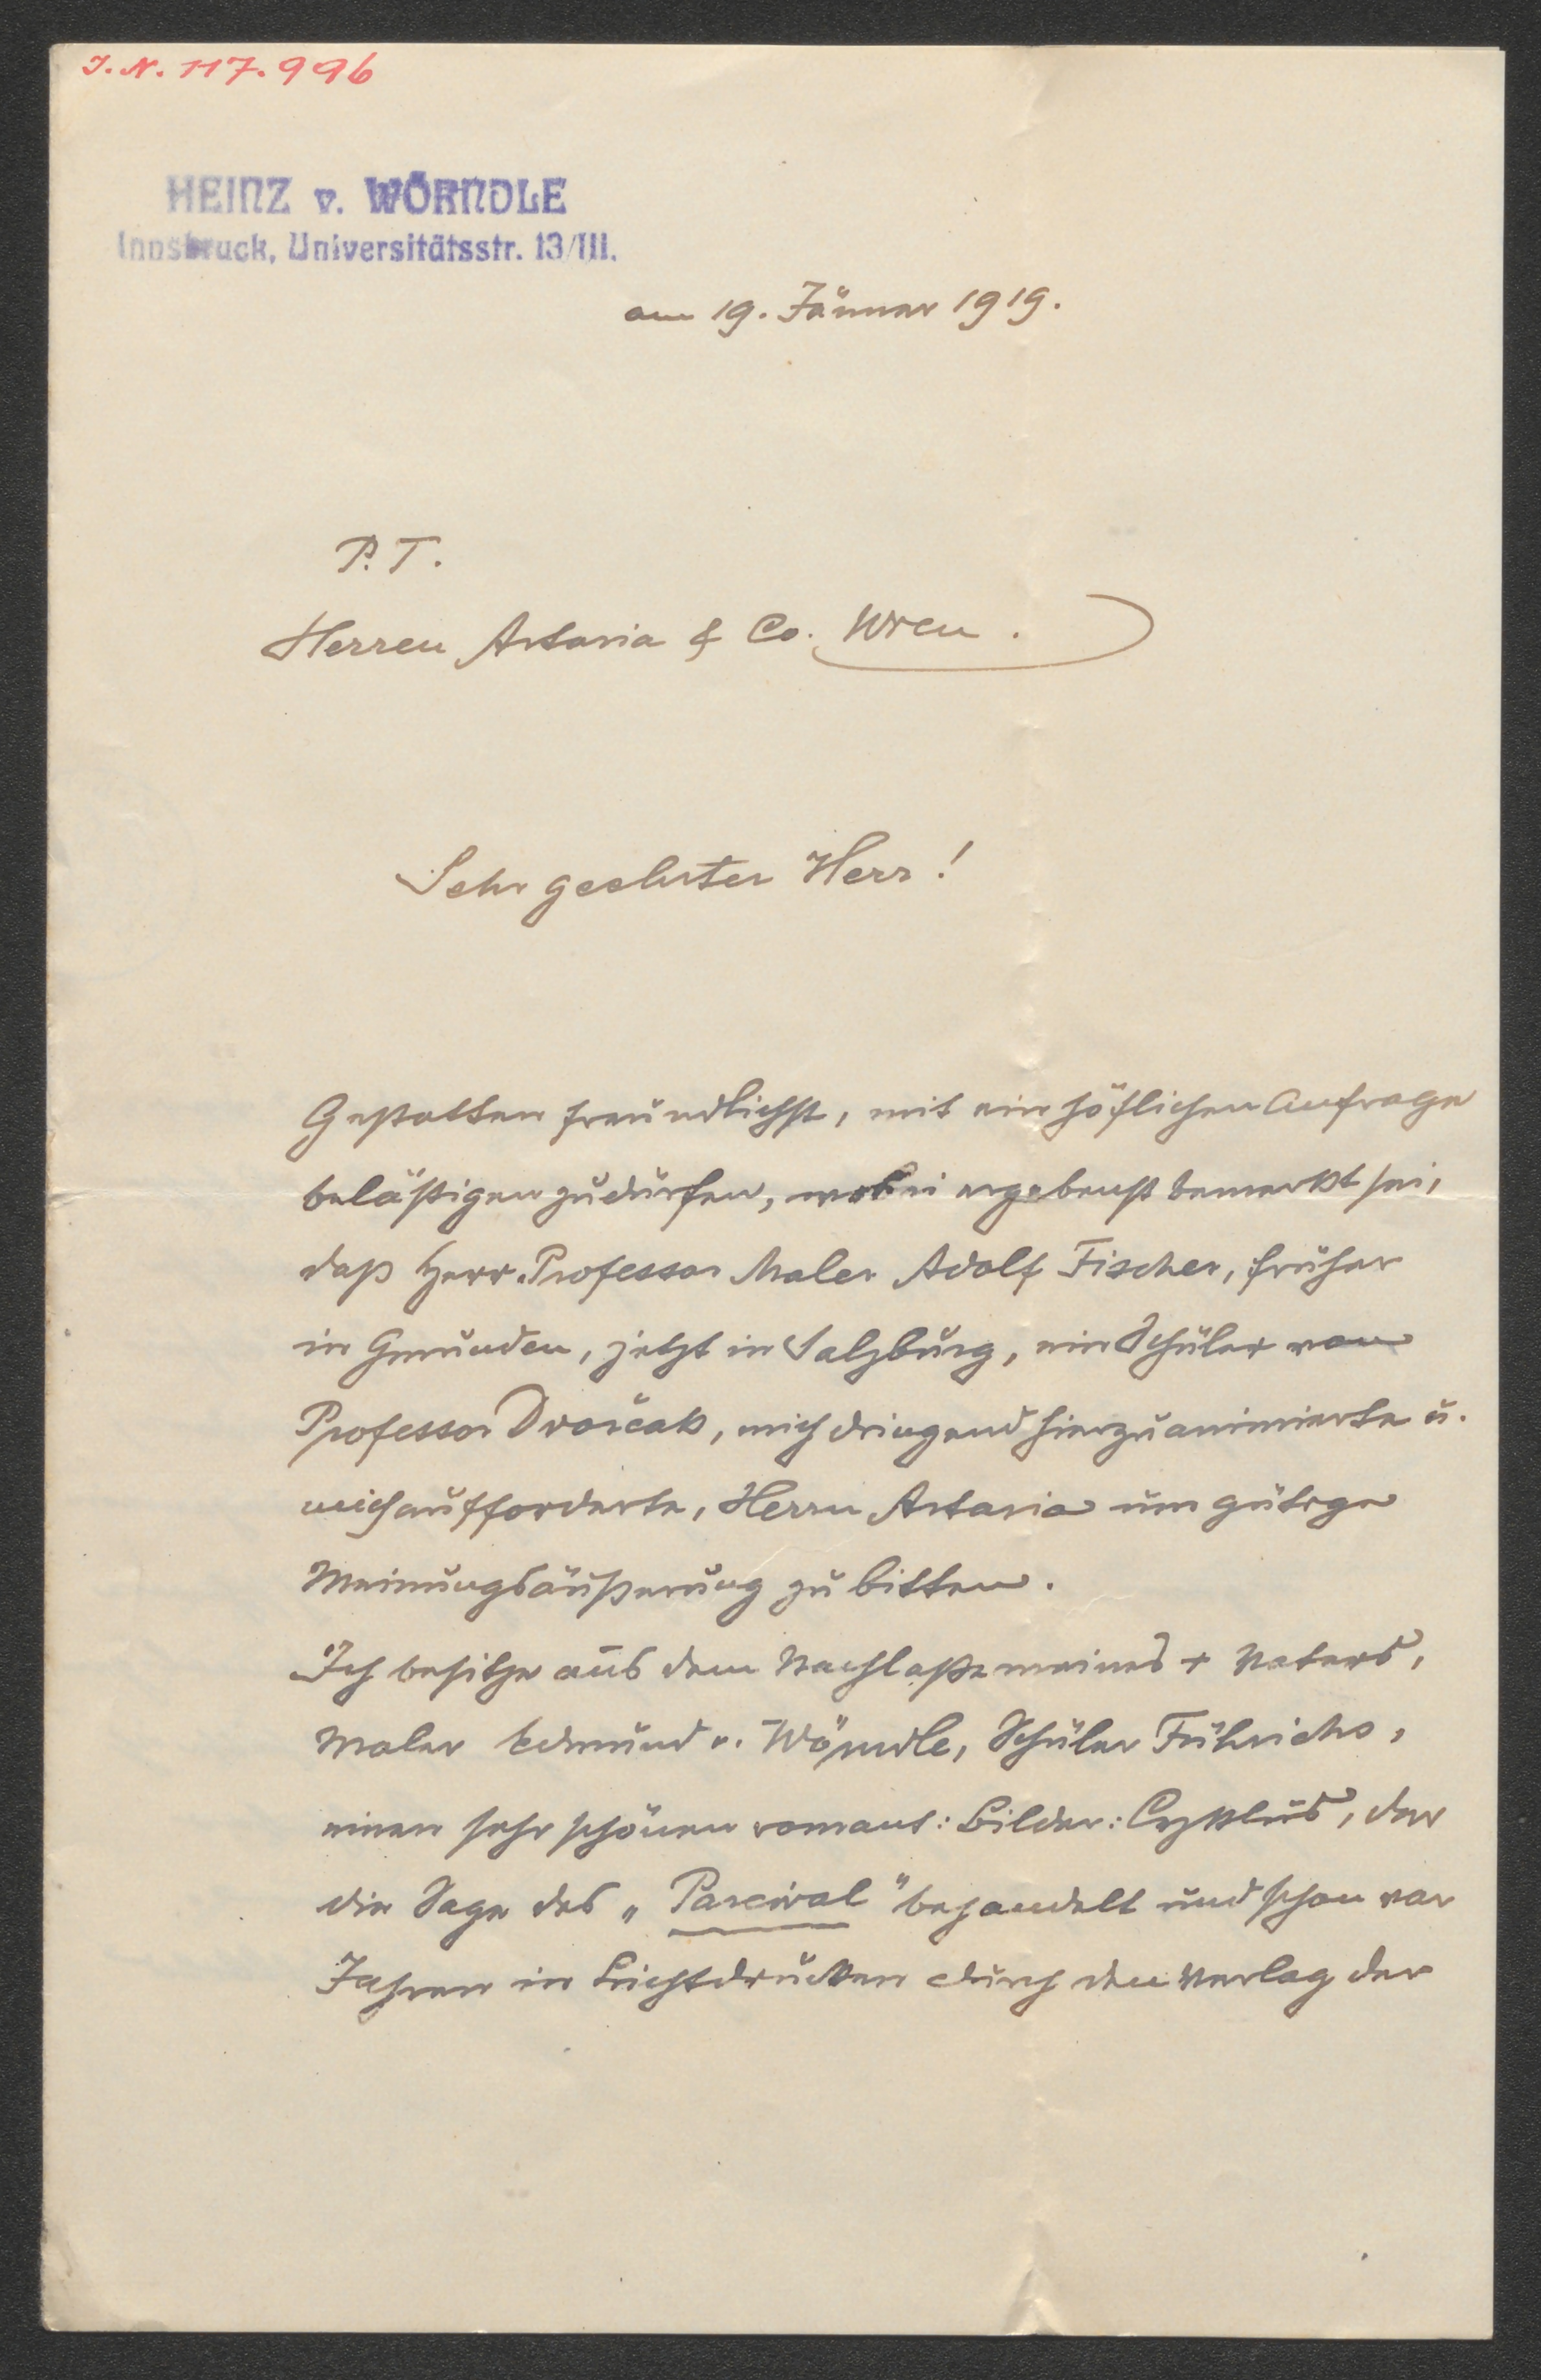 J. N. 117.996
HEINZ v. WÖRNDLE
Innsbruck, Universitätsstr. 13/III.
am 19. Jänner 1919.
P. T.
Herren Artaria & Co. Wien.
Sehr geehrter Herr!
Gestatten freundlichst, mit ein höflichen Anfrage
belästigen zu dürfen, wobei ergebenst bemerkt sei,
daß Herr Professor Maler Adolf Fischer, früher
in Gmunden, jetzt in Salzburg, ein Schüler von
Professor Dvořcak, mich dringend hierzu animierte u.
mich aufforderte, Herrn Artaria um gütige
Meinungsäußerung zu bitten.
Ich besitze aus dem Nachlaße meines + Vaters,
Maler Edmund v. Wörndle, Schüler Führichs,
einen sehr schönen romant: Bilder: Cyklus, der
die Sage des „Parcival" behandelt und schon vor
Jahren in Lichtdrucken durch den Verlag der